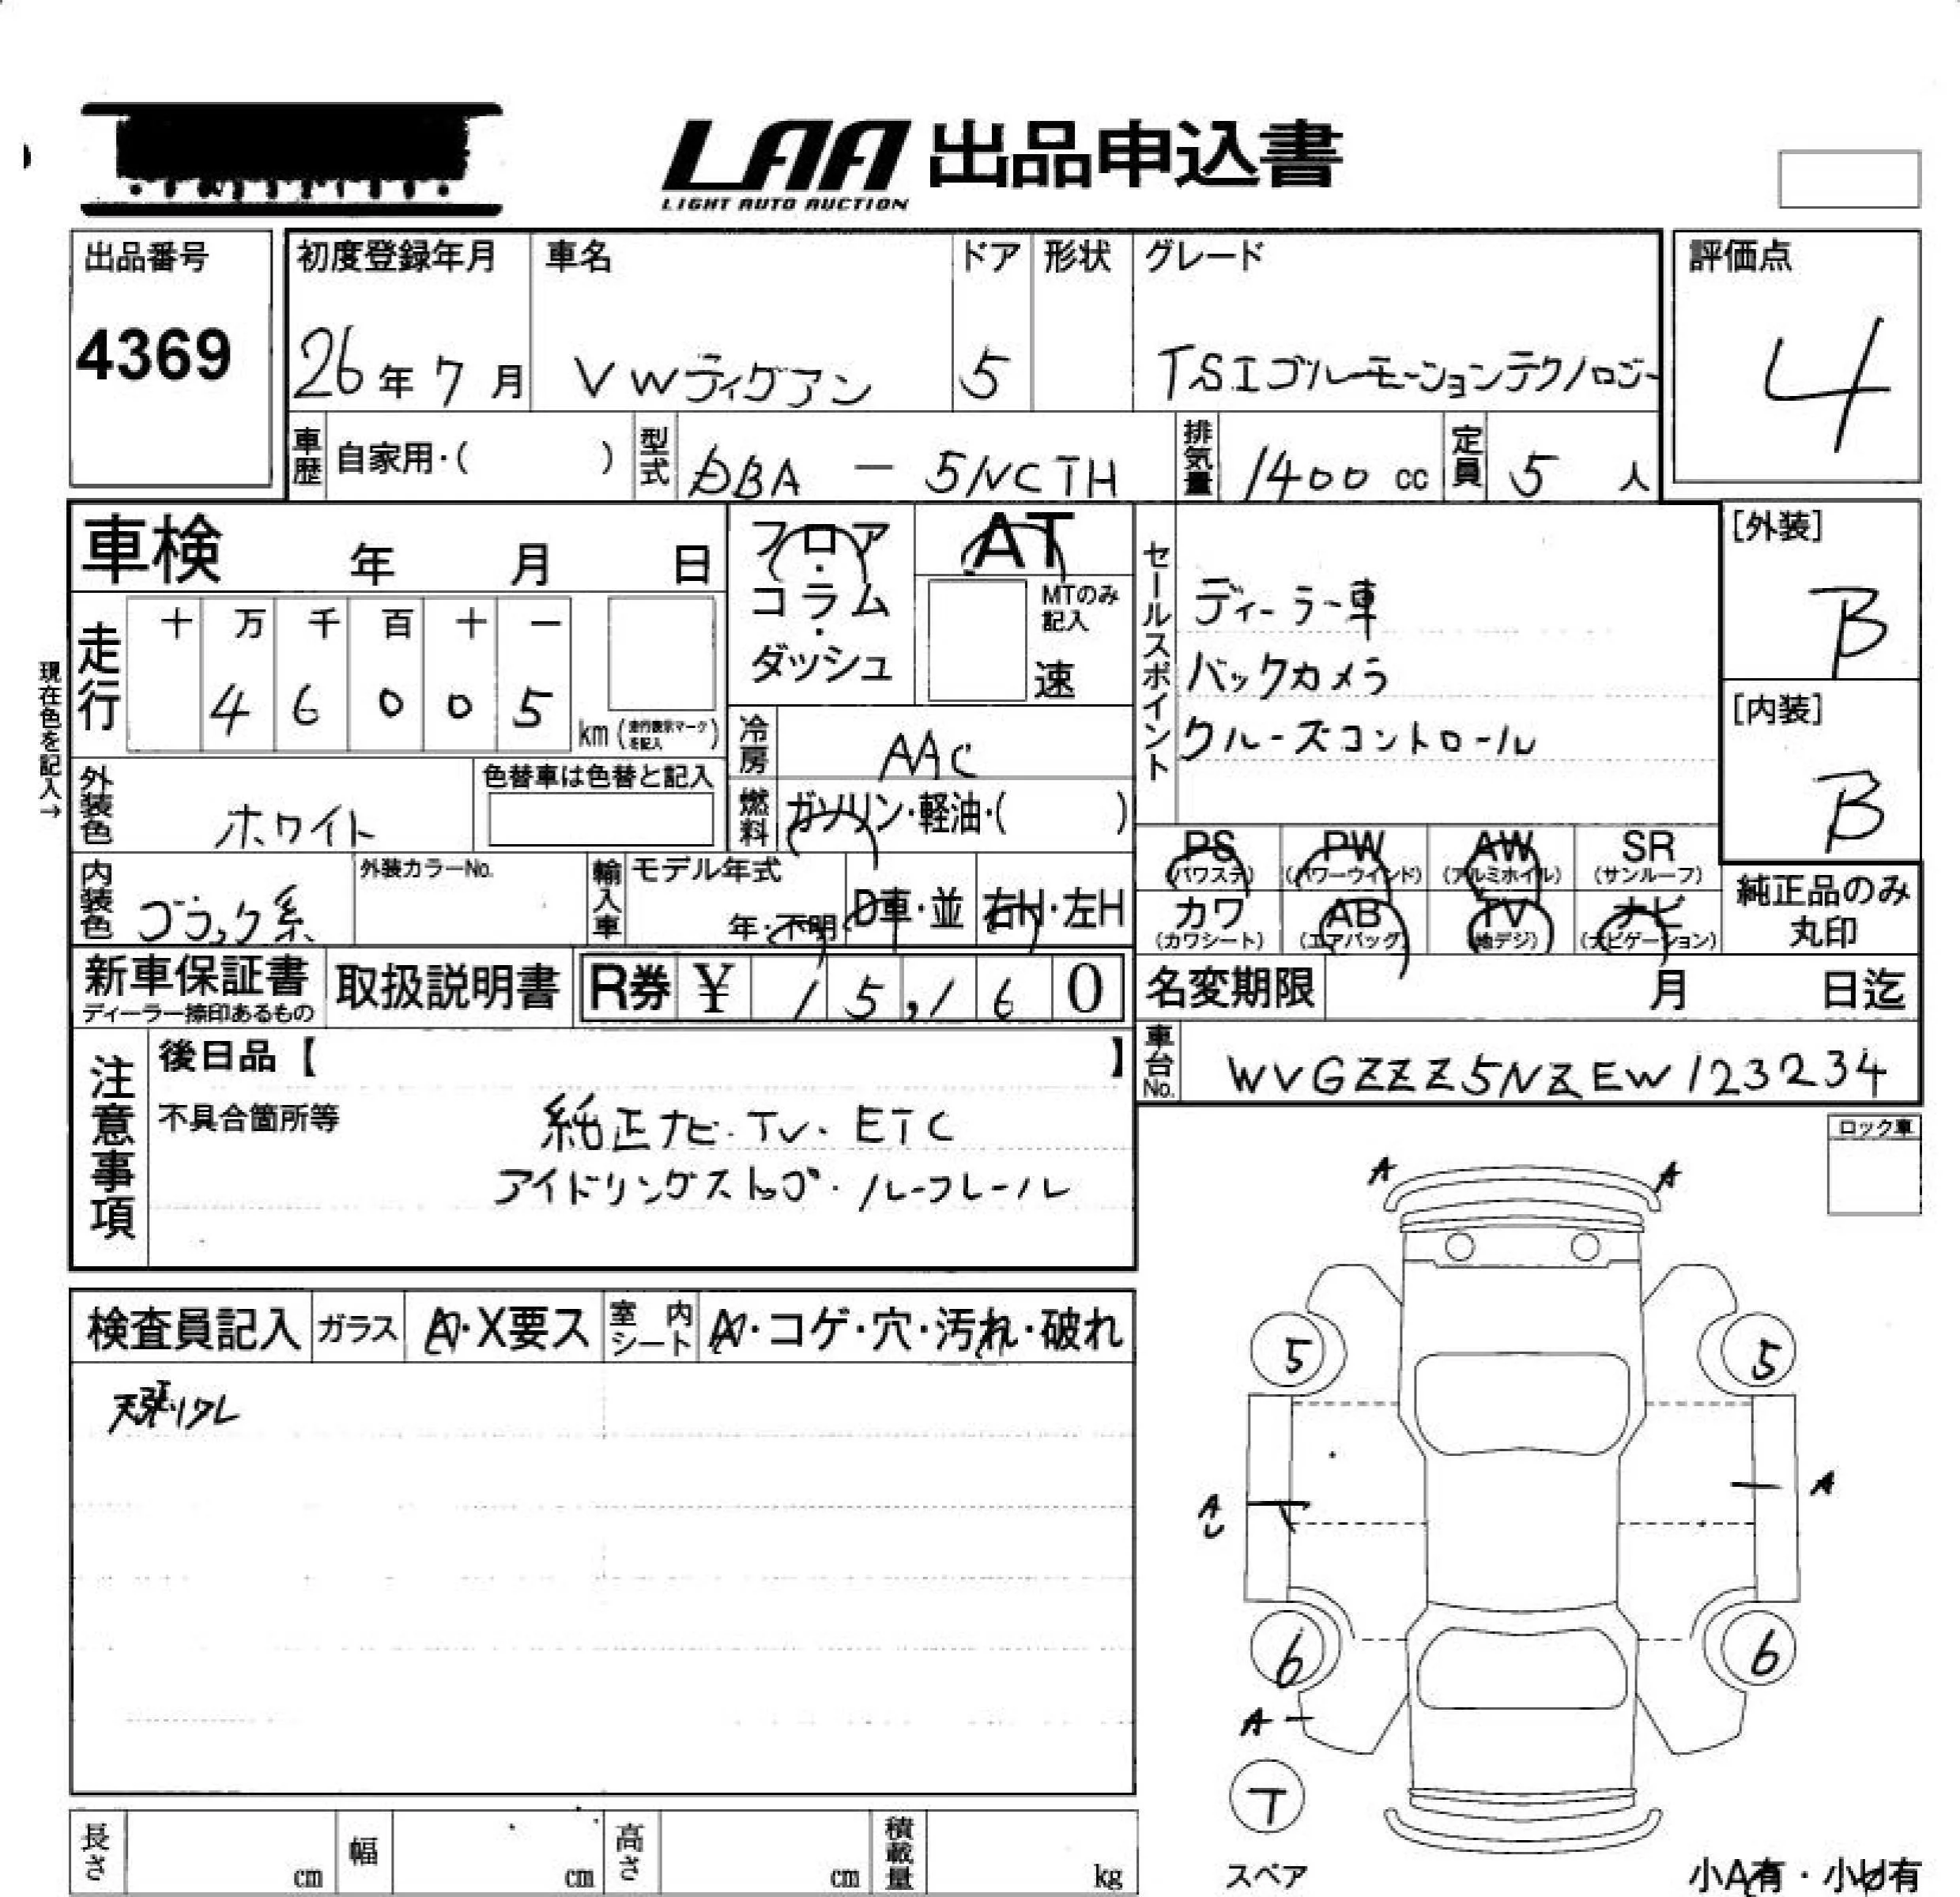 LAA 出品申込書
LIGHT AUTO AUCTION
出品番号
4369
初度登録年月
26年7月
車名
VWティグアン
ドア
5
形状
グレード
TSIブルーモーションテクノロジー
評価点
4
車歴 自家用・( )
型式 DBA — 5NCTH
排気量 1400 cc
定員 5 人
車検 年 月 日
フロア・コラム・ダッシュ
AT
MTのみ記入
速
セールスポイント
ディーラー車
バックカメラ
クルーズコントロール
[外装]
B
[内装]
B
現在色を記入→
走行
十 万 千 百 十 一
4 6 0 0 5
km (走行表示マークを記入)
冷房 AAC
燃料 ガソリン・軽油・( )
外装色 ホワイト
色替車は色替と記入
内装色 ブラック系
外装カラーNo.
輸入車
モデル年式
年・不明
D車・並
右H・左H
PS (パワステ)
PW (パワーウインド)
AW (アルミホイル)
SR (サンルーフ)
カワ (カワシート)
AB (エアバッグ)
TV (地デジ)
ナビ (ナビゲーション)
純正品のみ丸印
新車保証書
ディーラー捺印あるもの
取扱説明書
R券 ¥ 15,160
名変期限 月 日迄
車台No. WVGZZZ5NZEW123234
注意事項
後日品【 】
不具合箇所等
純正ナビ・TV・ETC
アイドリングストップ・ルーフレール
ロック車
検査員記入
ガラス A・X要ス
室内シート A・コゲ・穴・汚れ・破れ
天張リクレ
A A
5 5
A
A
U
6 6
A
T
スペア
長さ cm
幅 cm
高さ cm
積載量 kg
小A有・小U有